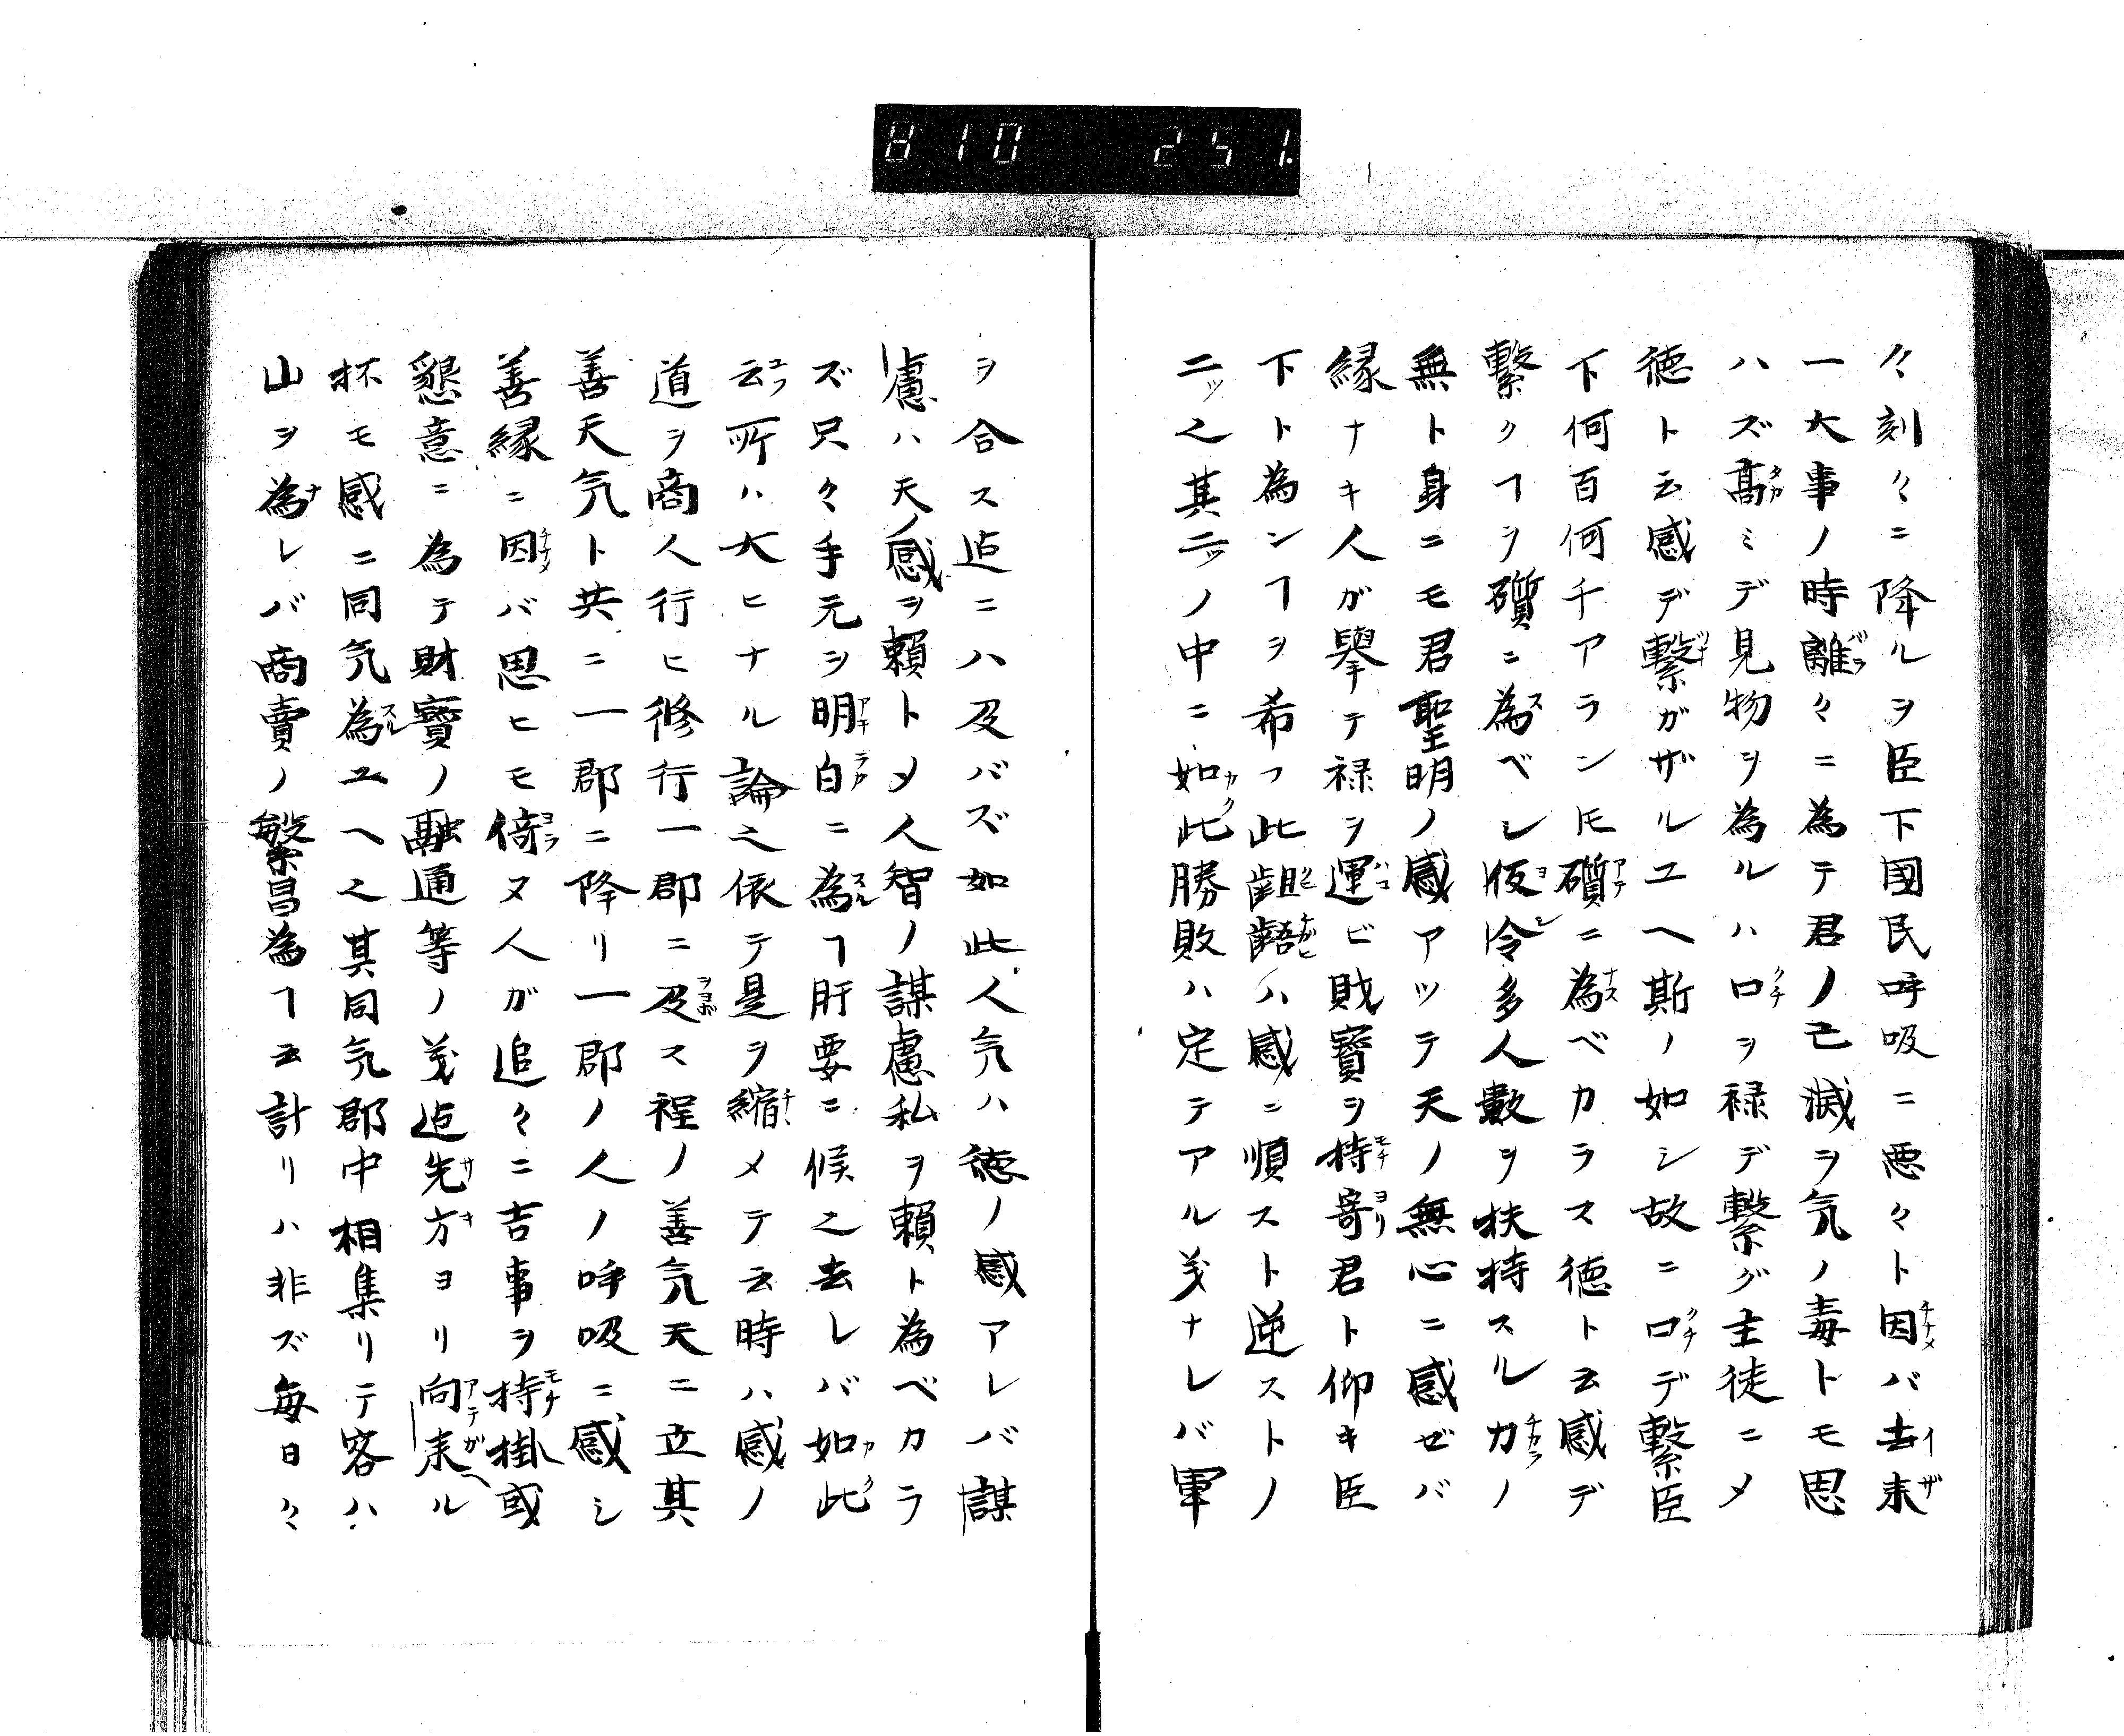 810 251.
々刻々ニ降ルヲ臣下國民呼吸ニ悪々ト因バ去来
一大事ノ時離々ニ為テ君ノ亡滅ヲ気ノ毒トモ思
ハズ高ミデ見物ヲ為ルハ口ヲ禄デ繋グ主徒ニメ
徳ト云感デ繋ガザルユヘ斯ノ如シ故ニ口デ繋臣
下何百何千アランモ礩ニ為ベカラス徳ト云感デ
繋クヿヲ礩ニ為ベシ仮令多人數ヲ扶持スル力ノ
無ト身ニモ君聖明ノ感アツテ天ノ無心ニ感ゼバ
縁ナキ人ガ擧テ禄ヲ運ビ財寳ヲ持寄君ト仰キ臣
下ト為ンヿヲ希フ此齟齬ハ感ニ順スト逆ストノ
二ッ之其二ッノ中ニ如此勝敗ハ定テアル義ナレバ軍
ヲ合ス迠ニハ及バズ如此人気ハ徳ノ感アレバ謀
慮ハ天ノ感ヲ頼トメ人智ノ謀慮私ヲ頼ト為ベカラ
ズ只々手元ヲ明白ニ為ヿ肝要ニ候之去レバ如此
云所ハ大ヒナル論之依テ是ヲ縮メテ云時ハ感ノ
道ヲ商人行ヒ修行一郡ニ及ス程ノ善気天ニ立其
善天気ト共ニ一郡ニ降リ一郡ノ人ノ呼吸ニ感シ
善縁ニ因バ思ヒモ倚ヌ人ガ追々ニ吉事ヲ持掛或
懇意ニ為テ財寳ノ融通等ノ義迠先方ヨリ向来ル
抔モ感ニ同気為ユヘ之其同気郡中相集リテ客ハ
山ヲ為レバ商賣ノ繁昌為ヿ云計リハ非ズ毎日々